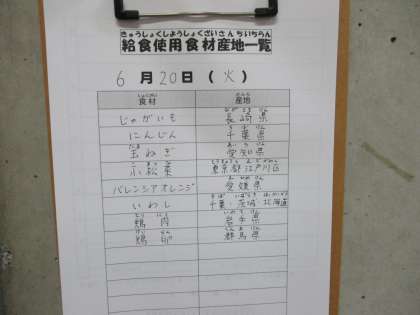 きゅうしょくしようしょくざいさんちいちらん
給食使用食材産地一覧
6月20日(火)
食材 産地
じゃがいも 長崎県
にんじん 千葉県
玉ねぎ 愛知県
小松菜 東京都江戸川区
バレンシアオレンジ 愛媛県
いわし 千葉・茨城・北海道
鶏肉 岩手県
鶏卵 群馬県